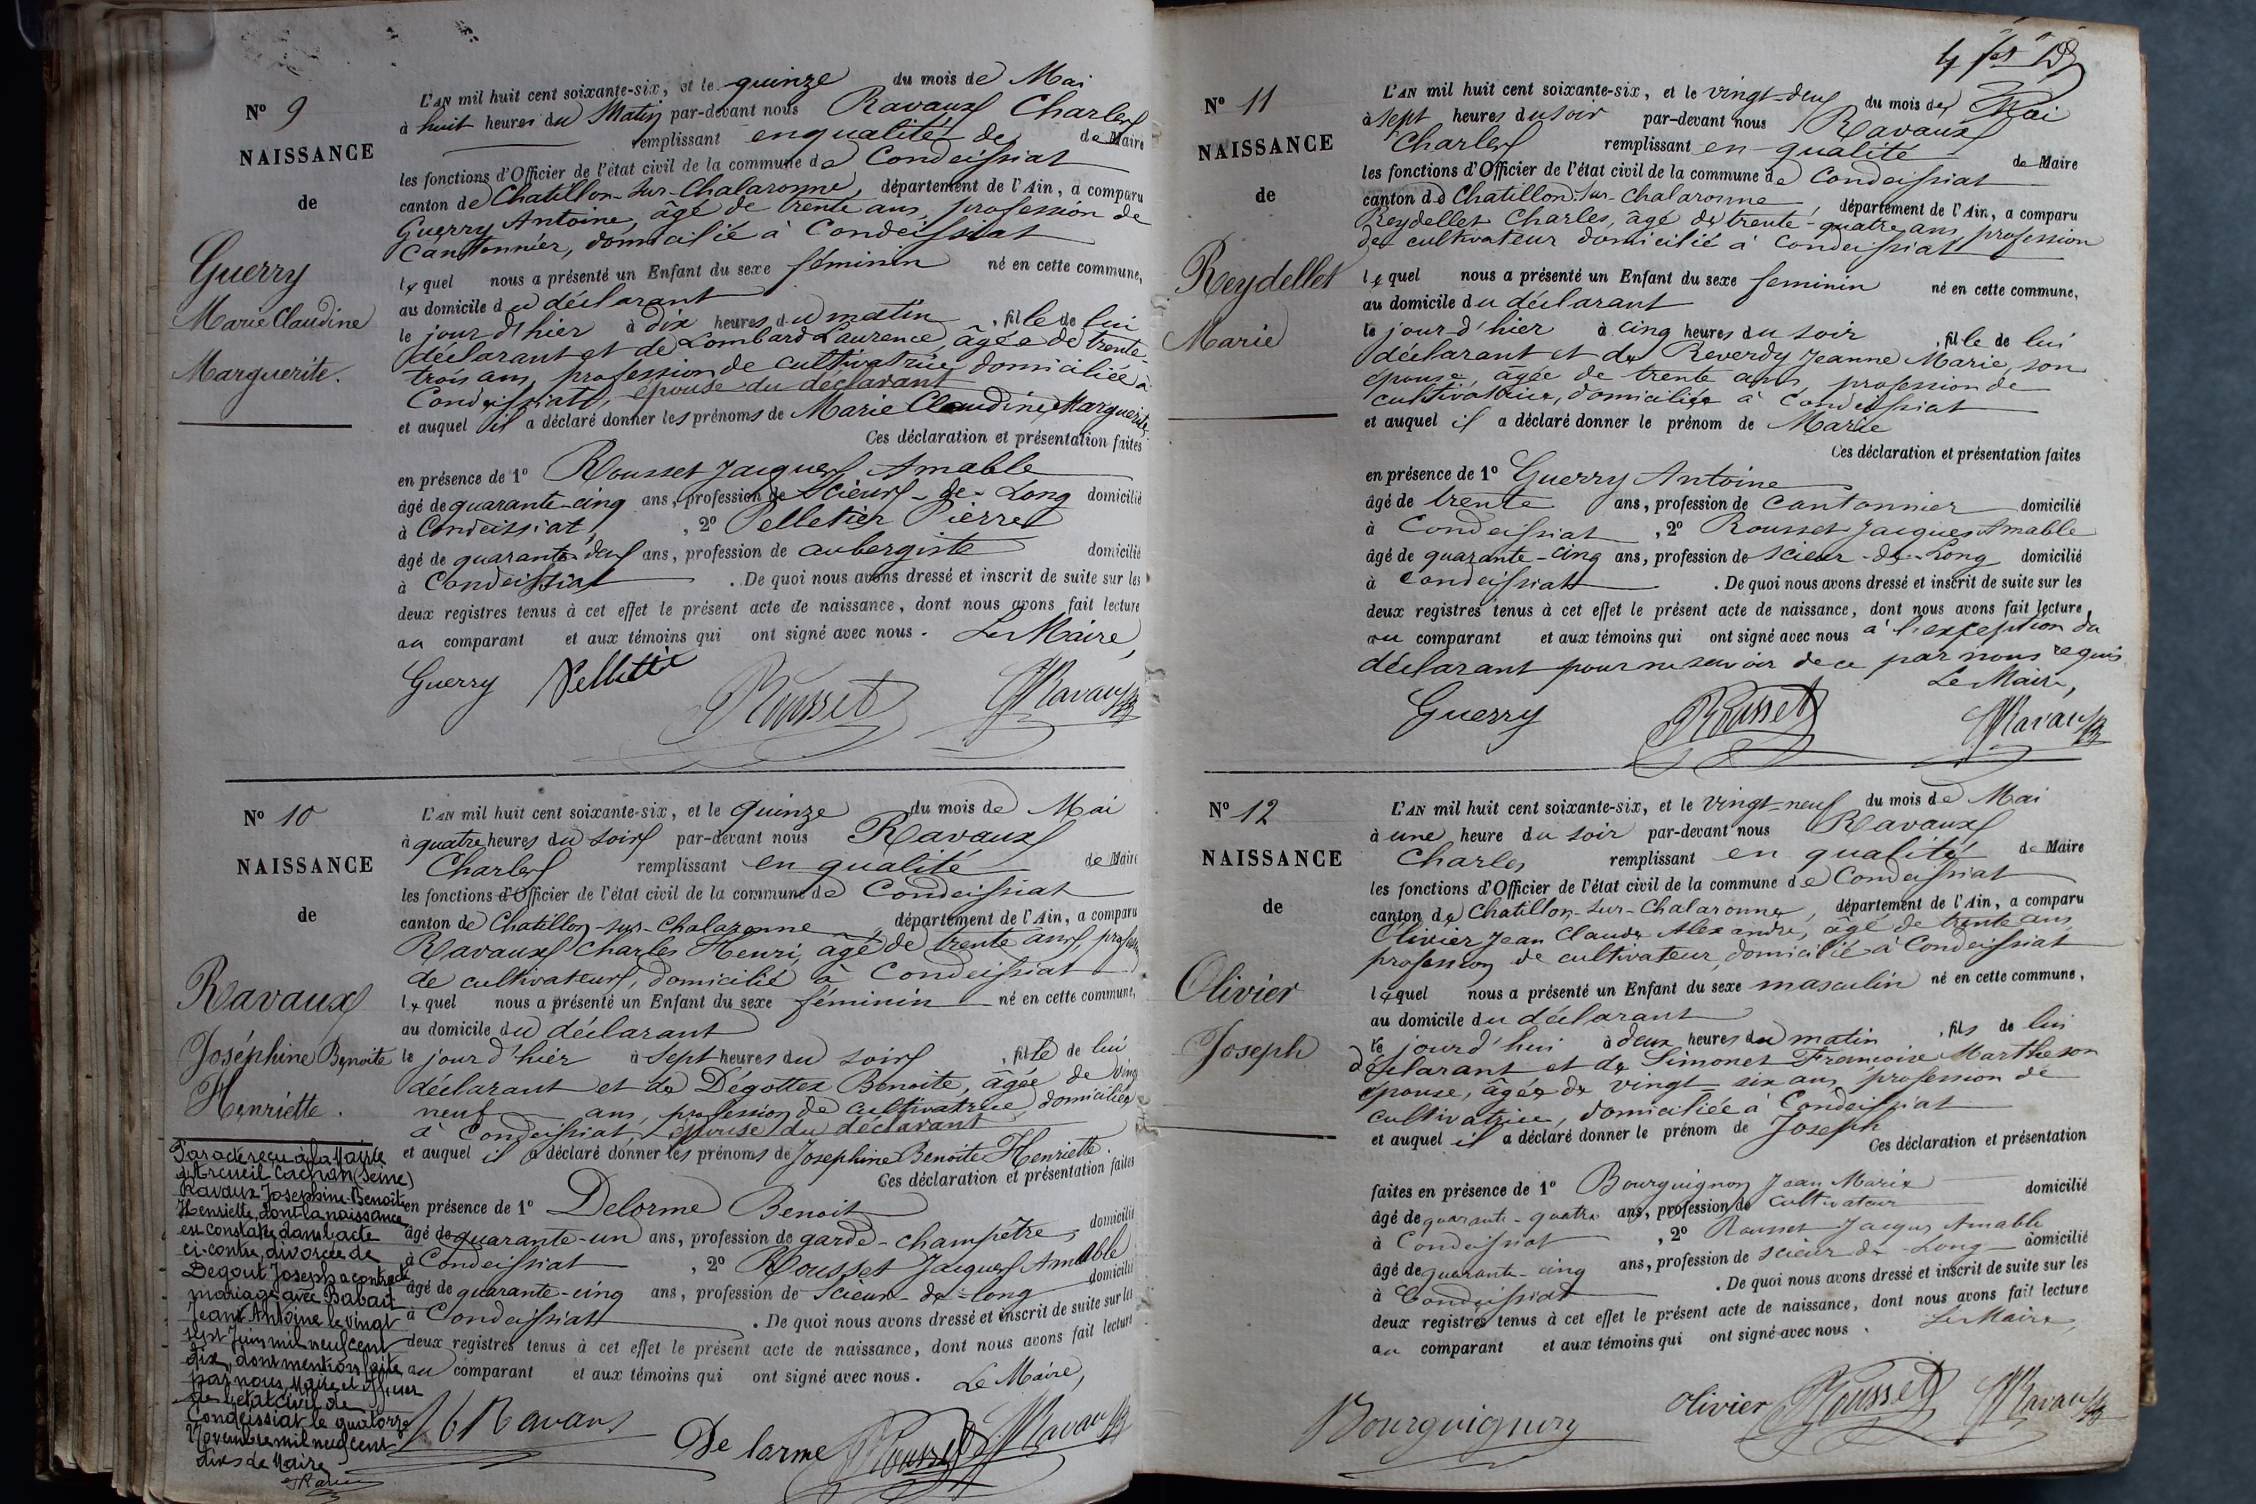 N° 9
NAISSANCE
de
Guerry
Marie Claudine
Marguerite.
L'AN mil huit cent soixante-six, et le quinze du mois de Mai
à huit heures du Matin par-devant nous Ravaux Charles
remplissant en qualité de de Maire
les fonctions d'Officier de l'état civil de la commune de Condeissiat
canton de Chatillon-sur-Chalaronne, département de l'Ain, a comparu
Guerry Antoine, âgé de trente ans, profession de
Cantonnier, domicilié à Condeissiat
lequel nous a présenté un Enfant du sexe féminin né en cette commune,
au domicile du déclarant
le jour d'hier à dix heures du matin, fille de lui
déclarant et de Lombard Laurence, âgée de trente-
trois ans, profession de cultivatrice, domiciliée à
Condeissiat, épouse du déclarant
et auquel il a déclaré donner les prénoms de Marie Claudine Marguerite
Ces déclaration et présentation faites
en présence de 1° Rousset Jacques Amable
âgé de quarante-cinq ans, profession de scieur-de-Long domicilié
à Condeissiat, , 2° Pelletier Pierre
âgé de quarante-deux ans, profession de aubergiste domicilié
à Condeissiat . De quoi nous avons dressé et inscrit de suite sur les
deux registres tenus à cet effet le présent acte de naissance, dont nous avons fait lecture
au comparant et aux témoins qui ont signé avec nous. Le Maire,
Guerry Pelletié Rousset Ravaux
N° 10
NAISSANCE
de
Ravaux
Joséphine Benoite
Henriette.
L'AN mil huit cent soixante-six, et le Quinze du mois de Mai
à quatre heures du soir par-devant nous Ravaux
Charles remplissant en qualité de Maire
les fonctions d'Officier de l'état civil de la commune de Condeissiat
canton de Chatillon-sur-Chalaronne, département de l'Ain, a comparu
Ravaux Charles Henri, âgé de trente ans, profession
de cultivateur, domicilié à Condeissiat
lequel nous a présenté un Enfant du sexe féminin né en cette commune,
au domicile du déclarant
le jour d'hier à sept heures du soir, fille de lui
déclarant et de Dégottex Benoite, âgée de vingt
neuf ans, profession de cultivatrice, domiciliée
à Condeissiat, épouse du déclarant
et auquel il a déclaré donner les prénoms de Josephine Benoite Henriette.
Ces déclaration et présentation faites
en présence de 1° Delorme Benoit
âgé de quarante-un ans, profession de garde-champêtre, domicilié
à Condeissiat , 2° Rousset Jacques Amable
âgé de quarante-cinq ans, profession de Scieur-de-long domicilié
à Condeissiat . De quoi nous avons dressé et inscrit de suite sur les
deux registres tenus à cet effet le présent acte de naissance, dont nous avons fait lecture
au comparant et aux témoins qui ont signé avec nous. Le Maire,
Ravaux De larme Rousset Ravaux
Par acte reçu à la Mairie
d'Arcueil Cachan (Seine)
Ravaux Josephine-Benoite
Henriette, dont la naissance
est constatée dans l'acte
ci-contre, divorcée de
Degout Joseph a contracté
mariage avec Babait
Jean Antoine le vingt
sept Juin mil neuf cent
dix, dont mention faite
par nous, Maire et Officier
de l'état civil de
Condeissiat le quatorze
Novembre mil neuf cent
dix
Maire
N° 11
NAISSANCE
de
Reydellet
Marie
L'AN mil huit cent soixante-six, et le vingt-deux du mois de Mai
à sept heures du soir par-devant nous Ravaux
Charles remplissant en qualité de Maire
les fonctions d'Officier de l'état civil de la commune de Condeissiat
canton de Chatillon-sur-Chalaronne, département de l'Ain, a comparu
Reydellet Charles, âgé de trente-quatre ans, profession
de cultivateur domicilié à Condeissiat
lequel nous a présenté un Enfant du sexe féminin né en cette commune,
au domicile du déclarant
le jour d'hier à cinq heures du soir, fille de lui
déclarant et de Reverdy Jeanne Marie, son
épouse, âgée de trente ans, profession de
cultivatrice, domiciliée à Condeissiat
et auquel il a déclaré donner le prénom de Marie
Ces déclaration et présentation faites
en présence de 1° Guerry Antoine
âgé de trente ans, profession de cantonnier domicilié
à Condeissiat , 2° Rousset Jacques Amable
âgé de quarante-cinq ans, profession de scieur-de-Long domicilié
à Condeissiat . De quoi nous avons dressé et inscrit de suite sur les
deux registres tenus à cet effet le présent acte de naissance, dont nous avons fait lecture
au comparant et aux témoins qui ont signé avec nous à l'exception du
déclarant pour ne savoir de ce par nous requis
Le Maire,
Guerry Rousset Ravaux
N° 12
NAISSANCE
de
Olivier
Joseph
L'AN mil huit cent soixante-six, et le vingt-neuf du mois de Mai
à une heure du soir par-devant nous Ravaux
Charles remplissant en qualité de Maire
les fonctions d'Officier de l'état civil de la commune de Condeissiat
canton de Chatillon-sur-Chalaronne, département de l'Ain, a comparu
Olivier Jean Claude Alexandre, âgé de trente ans,
profession de cultivateur, domicilié à Condeissiat
lequel nous a présenté un Enfant du sexe masculin né en cette commune,
au domicile du déclarant
le jourd'hui à deux heures du matin, fils de lui
déclarant et de Simonet Françoise Marthe son
épouse, âgée de vingt-six ans, profession de
cultivatrice, domiciliée à Condeissiat
et auquel il a déclaré donner le prénom de Joseph
Ces déclaration et présentation
faites en présence de 1° Bourguignon Jean Marie domicilié
âgé de quarante-quatre ans, profession de cultivateur
à Condeissiat , 2° Rousset Jacques Amable
âgé de quarante-cinq ans, profession de scieur de Long domicilié
à Condeissiat . De quoi nous avons dressé et inscrit de suite sur les
deux registres tenus à cet effet le présent acte de naissance, dont nous avons fait lecture
au comparant et aux témoins qui ont signé avec nous. Le Maire
Bourguignon Olivier Rousset Ravaux